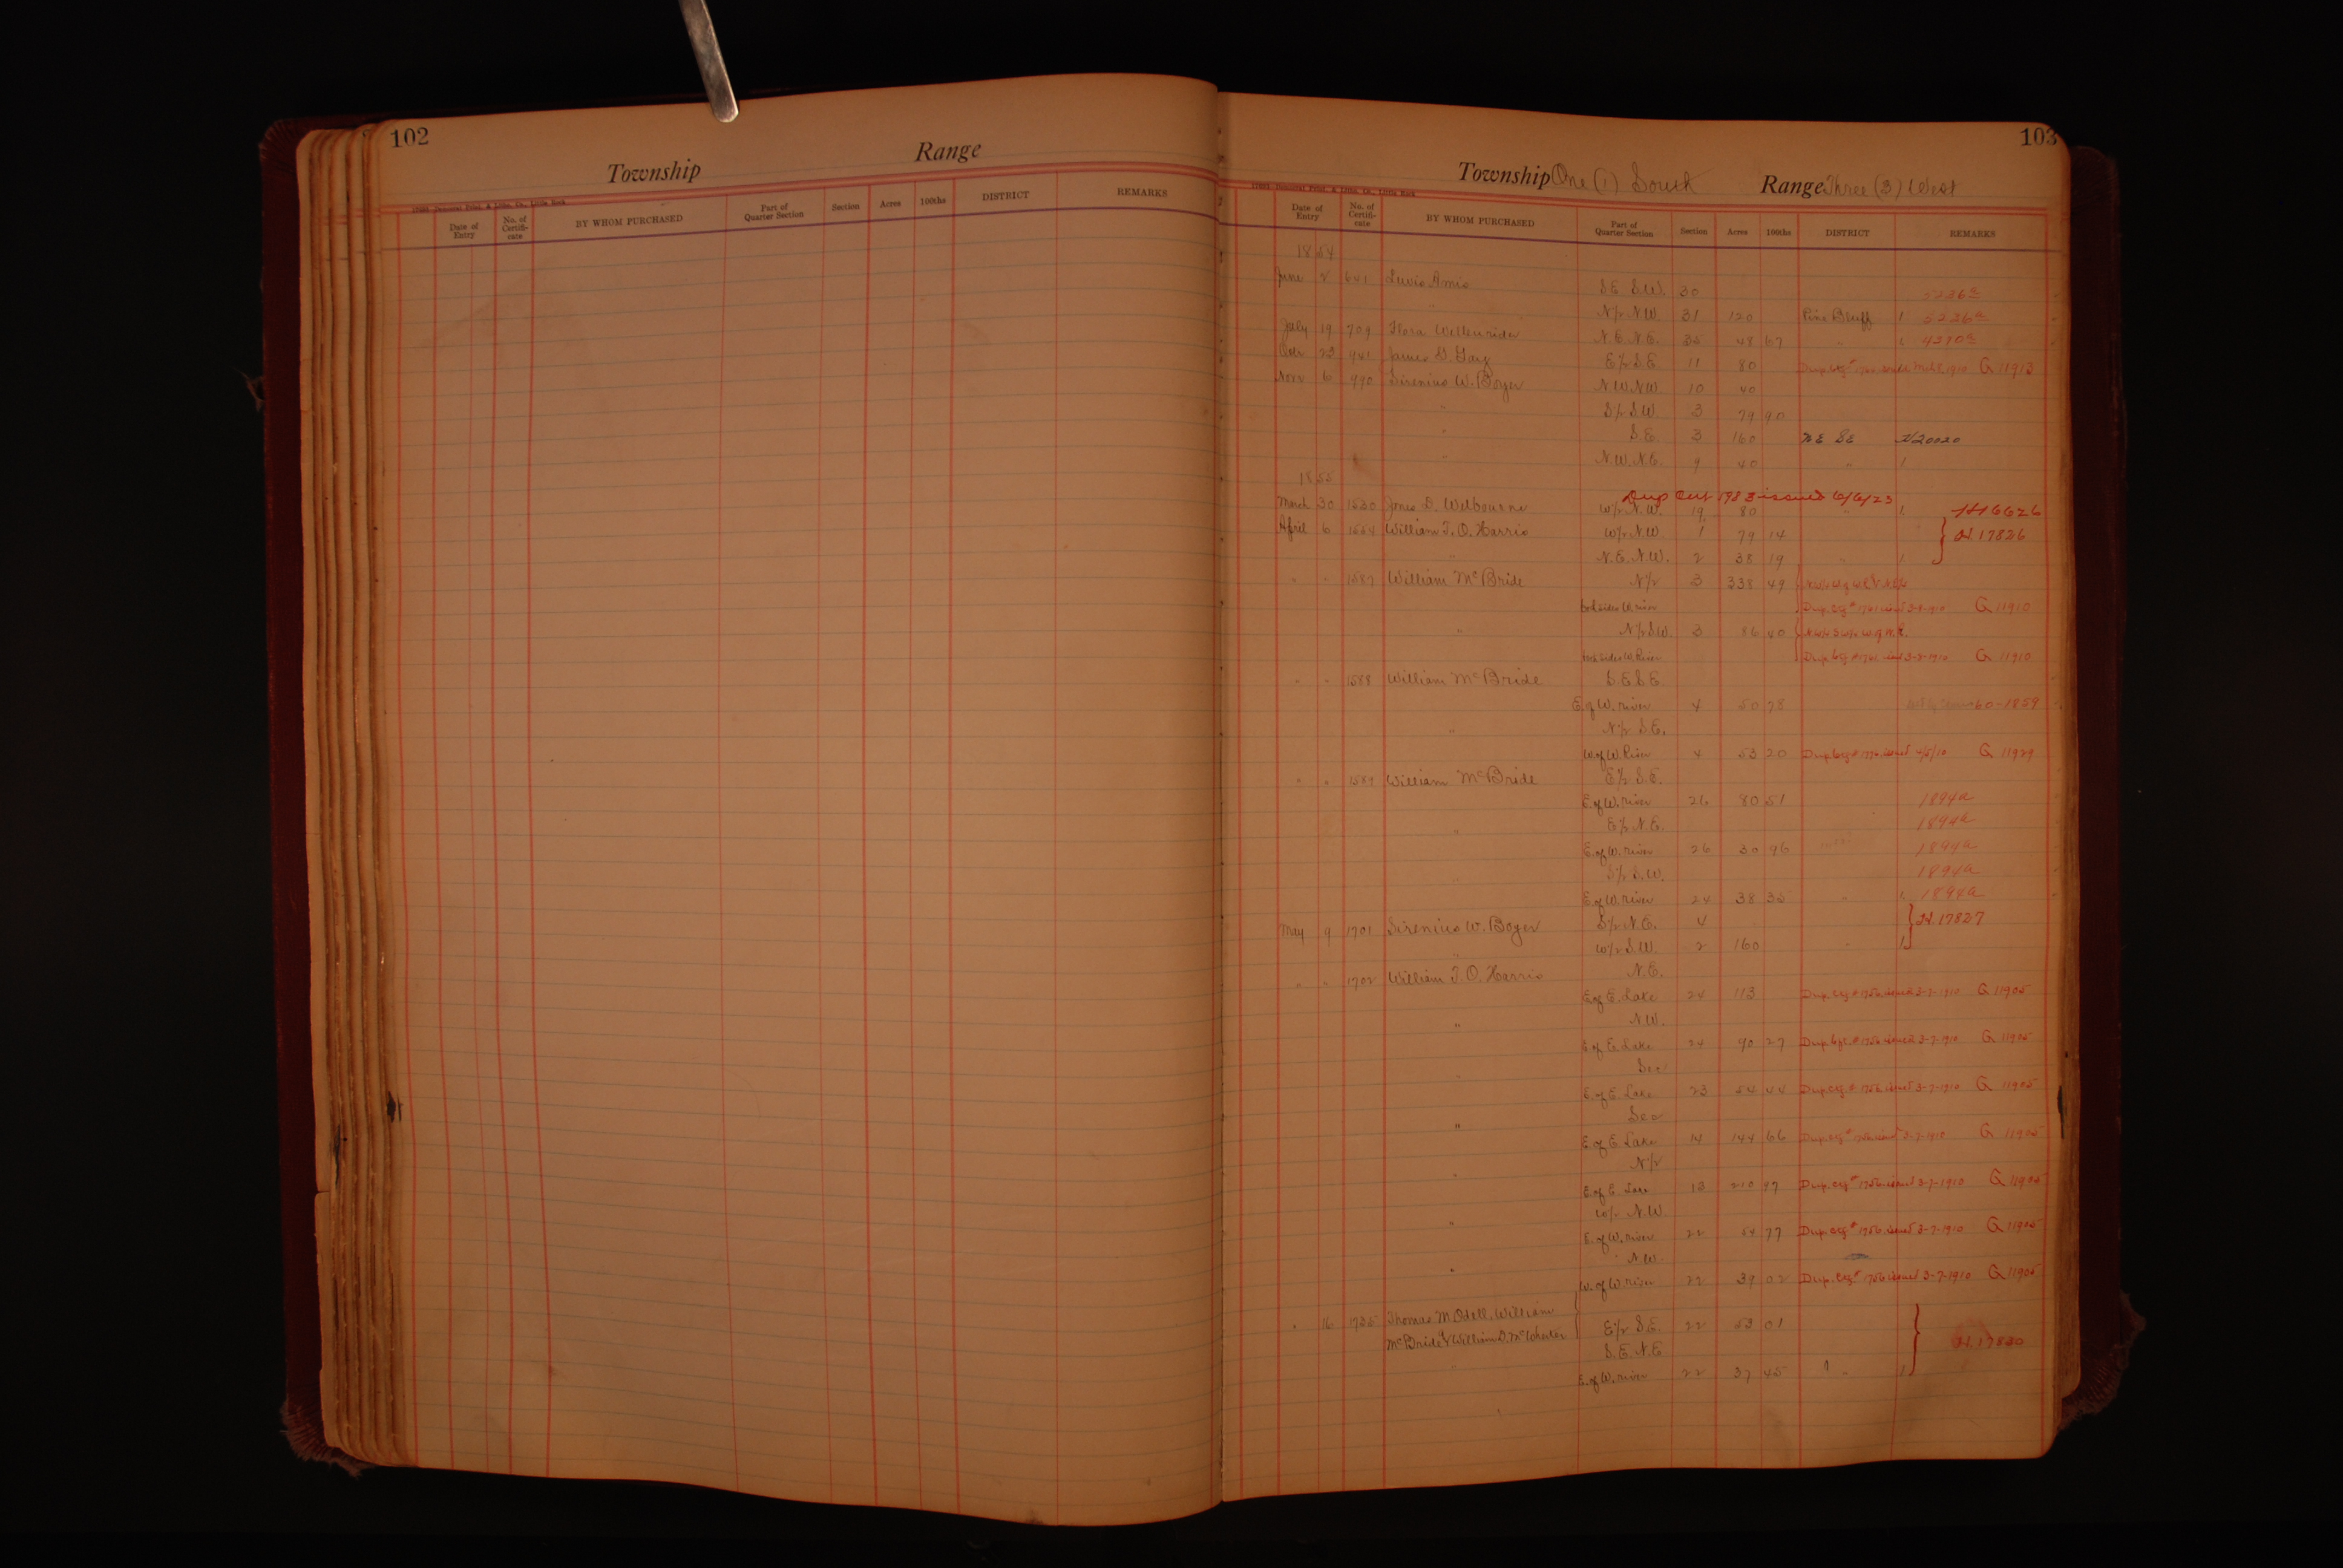 102
Township Range
Date of Entry No. of Certifi-cate BY WHOM PURCHASED Part of Quarter Section Section Acres 100ths DISTRICT REMARKS
103
Township One (1) South Range Three (3) West
Date of Entry No. of Certifi-cate BY WHOM PURCHASED Part of Quarter Section Section Acres 100ths DISTRICT REMARKS
1854
June 2 Amis S.E. S.W. 30 5236a
" N½ N.W. 31 120 Pine Bluff 5236a
July 19 709 Flora N.E. N.E. 35 48 67 "
Oct 23 941 James G. Gay E½ S.E. 11 80 G 11913
Nov 6 990 Sirenius W. Boyer N.W. N.W. 10 40
" S½ S.W. 3 79 90
" S.E. 3 160 N.E. S.E. H20020
" N.W. N.E. 9 40 "
1855
Dup Cert 1983 issued 6/6/23
March 30 1530 D. Welbourne W½ N.W. 19 80 " H16626
April 6 1554 William T. O. Harris W½ N.W. 1 79 14 H.17826
" N.E. N.W. 2 38 19 "
" " 1587 William McBride N½ 3 338 49
both sides W. river Dup. Ctf # 1761 issued 3-8-1910 G 11910
" N½ S.W. 3 86 40
both sides W. River Dup. Ctf # 1761 issued 3-8-1910 G 11910
" " 1588 William McBride S.E. S.E.
E. of W. river 4 50 78 60-1859
" N½ S.E.
W. of W. River 4 53 20 issued 4/5/10 G 11929
" " 1589 William McBride E½ S.E.
E. of W. river 26 80 51 1894a
" E½ N.E. 1894a
E. of W. river 26 30 96 1894a
S½ S.W. 1894a
E. of W. river 24 38 35 " 1894a
May 9 1701 Sirenius W. Boyer S½ N.E. 4 H.17827
" W½ S.W. 2 160 "
" " 1702 William T. O. Harris N.E.
E. of E. Lake 24 113 Dup. Ctf # 1756 issued 3-7-1910 G 11905
" N.W.
E. of E. Lake 24 90 27 Dup. Ctf. # 1756 issued 3-7-1910 G 11905
" Sec
E. of E. Lake 23 54 44 Dup. Ctf. # 1756 issued 3-7-1910 G 11905
" Sec
E. of E. Lake 14 144 66 Dup. Ctf # 1756 issued 3-7-1910 G 11905
" N½
E. of E. Lake 13 210 97 Dup. Ctf # 1756 issued 3-7-1910 G 11905
" W½ N.W.
E. of W. river 22 54 77 Dup. Ctf # 1756 issued 3-7-1910 G 11905
" N.W.
W. of W. river 22 39 02 Dup. Ctf # 1756 issued 3-7-1910 G 11905
" 16 1735 Thomas M. Odell, William
McBride & William D. McWhorter E½ S.E. 22 53 01 H.17830
S.E. N.E.
" E. of W. river 22 37 45 "